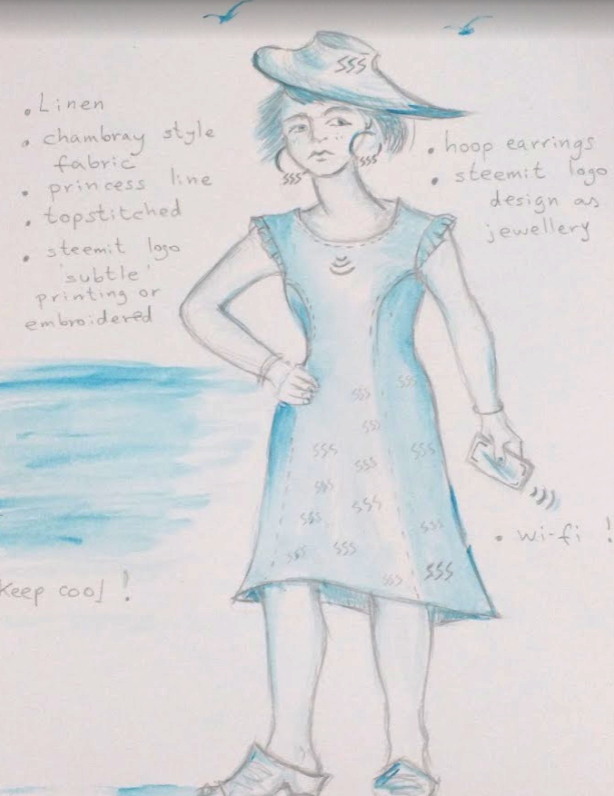 • Linen
• chambray style
fabric
• princess line
• topstitched
• steemit logo
'subtle'
printing or
embroidered
• hoop earrings
• steemit logo
design as
jewellery
• wi-fi !
Keep cool !